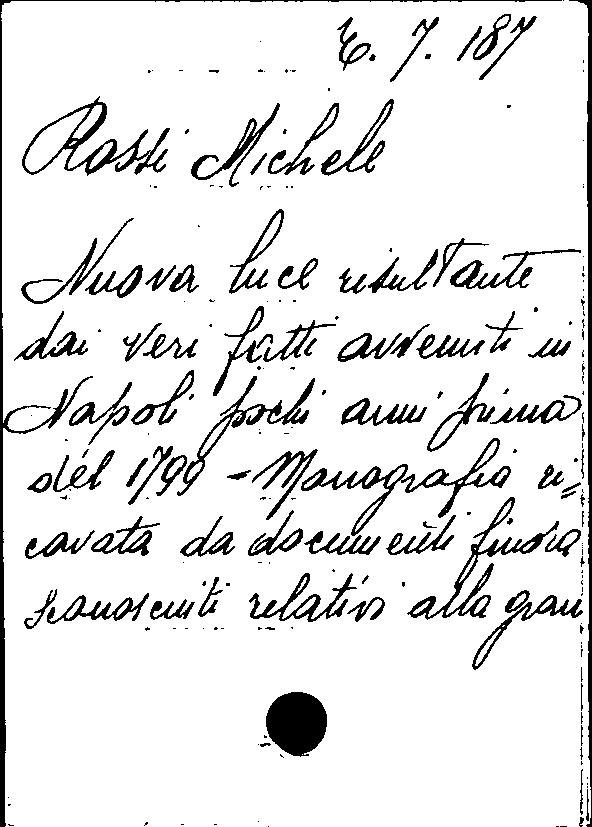 E. 7. 187
Rossi Michele
Nuova luce risultante
dai veri fatti avvenuti in
Napoli pochi anni prima
del 1799 - Monografia ri=
cavata da documenti finora
sconosciuti relativi alla gran